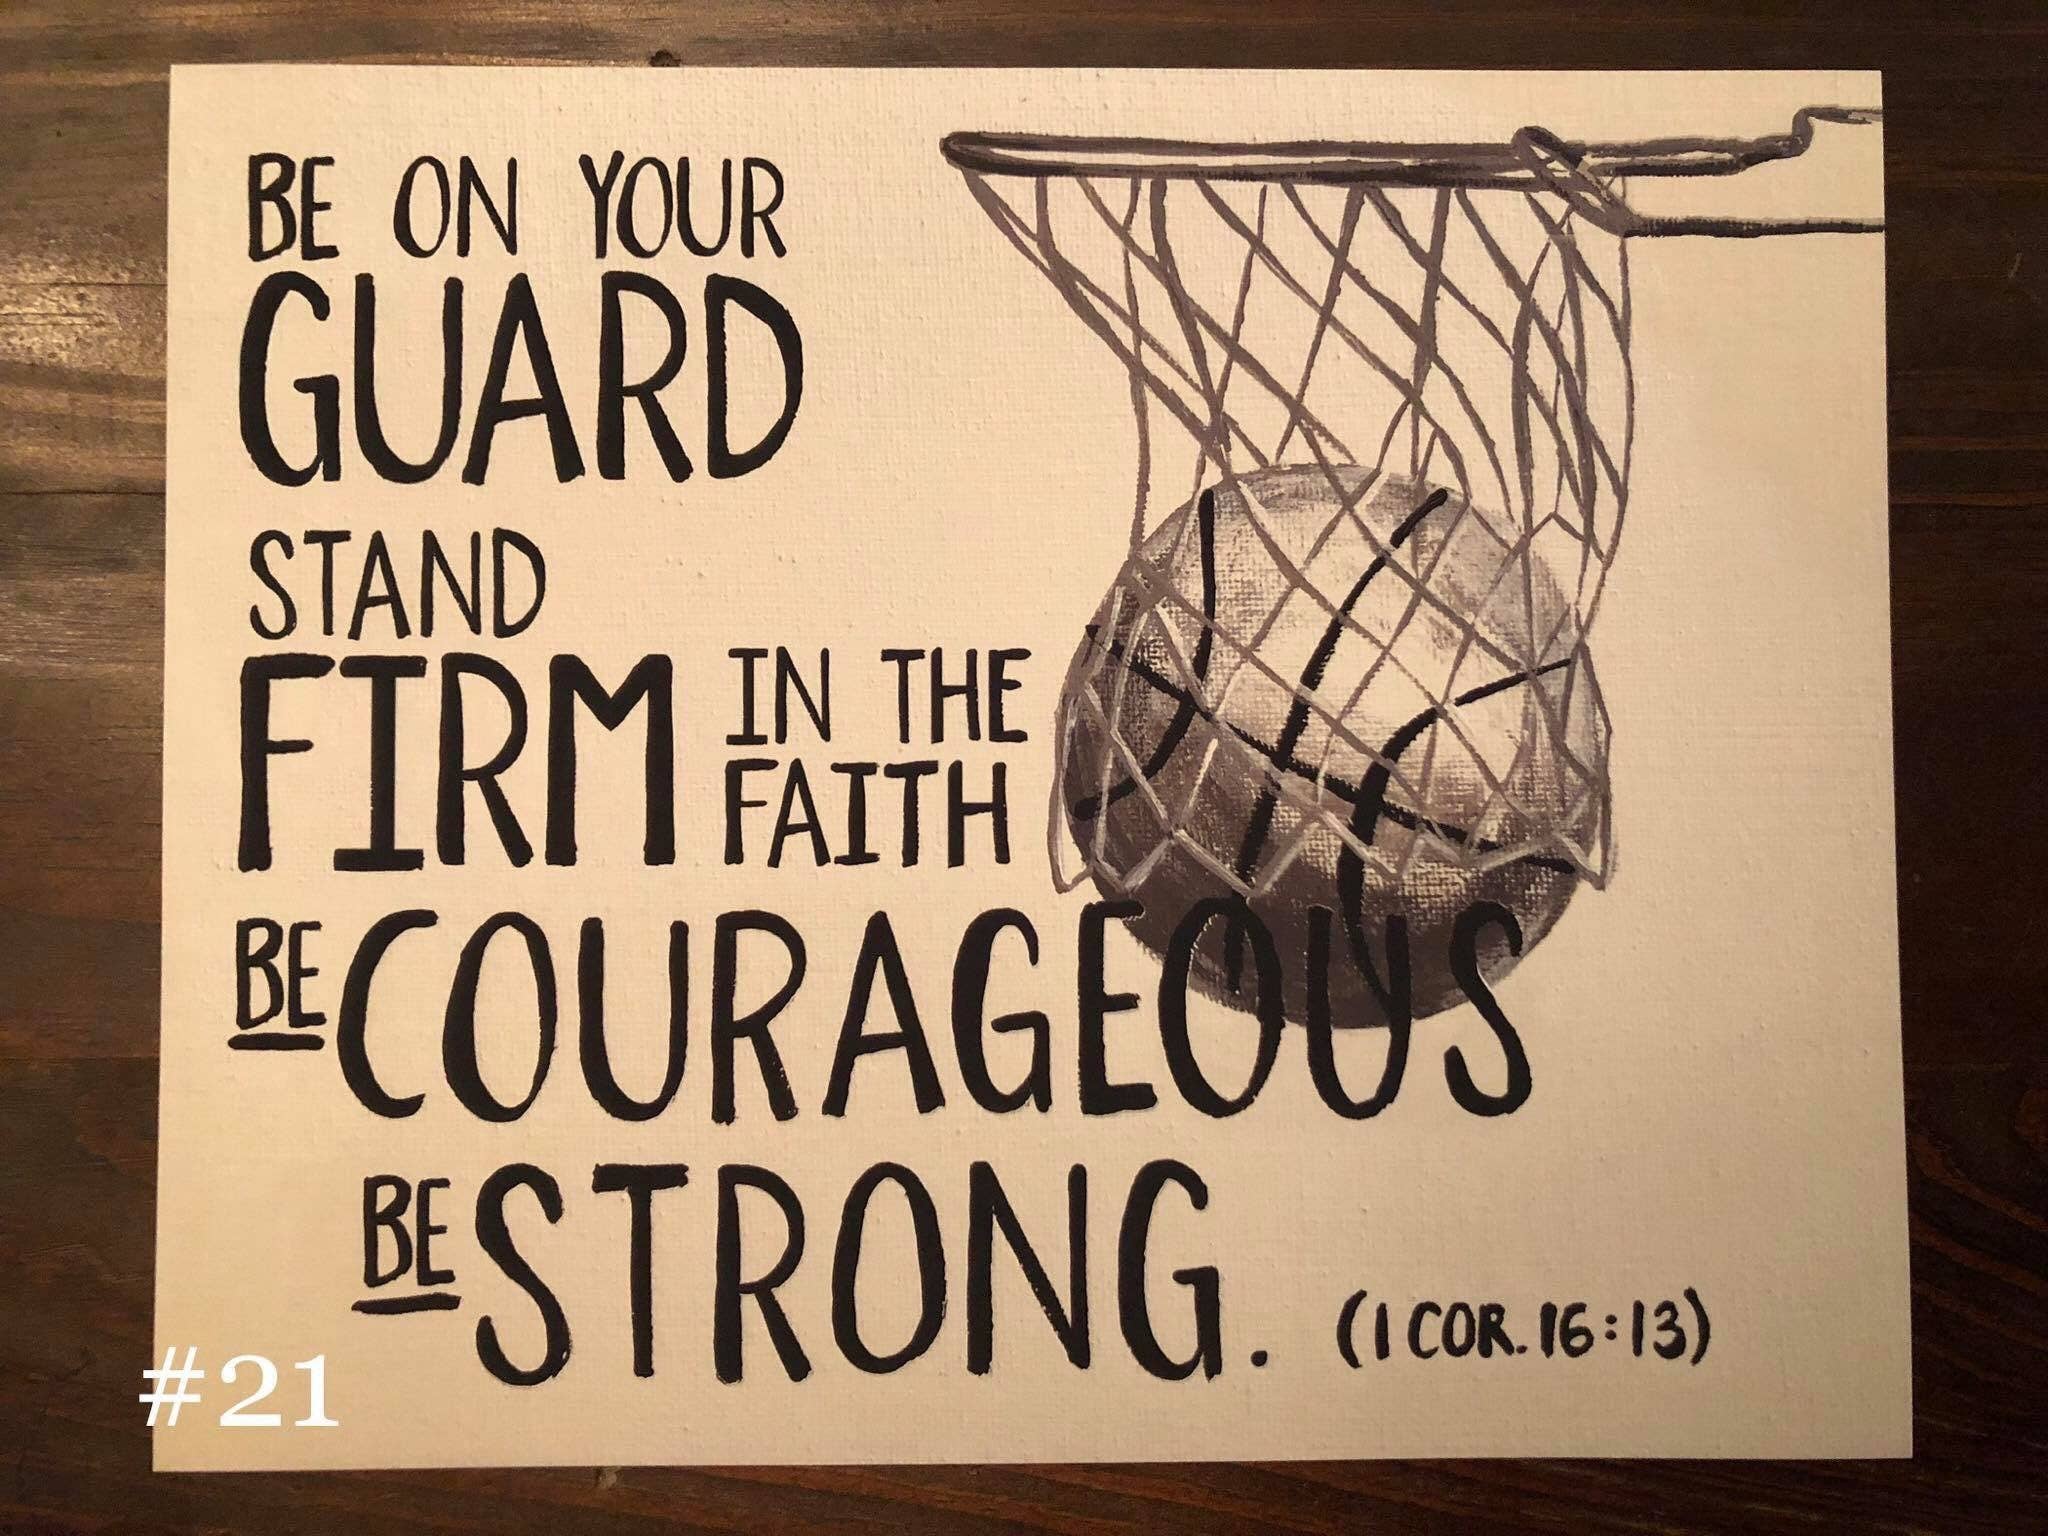 BE ON YOUR
GUARD
STAND
FIRM IN THE
FAITH
BE COURAGEOUS
BE STRONG. (1 COR. 16:13)
#21